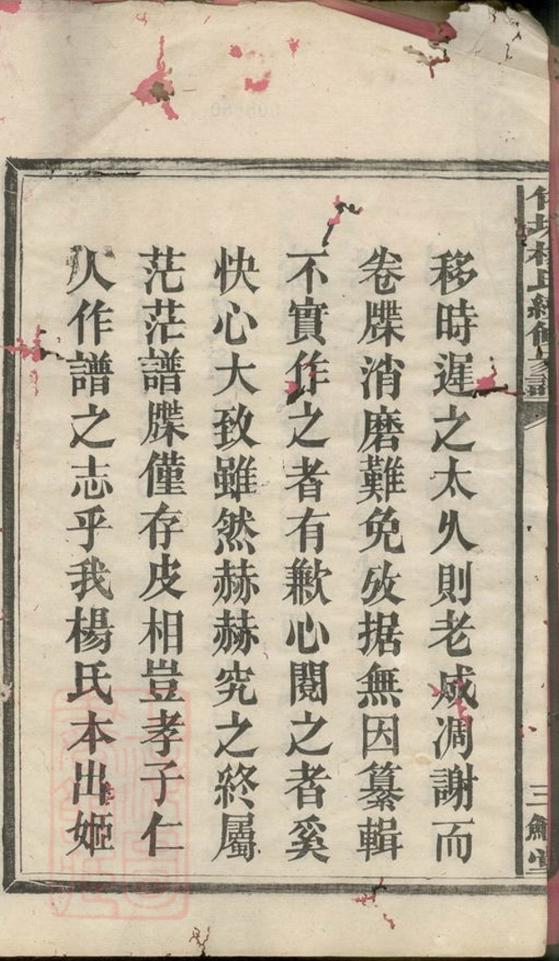 楊氏續修
譜
三鱣堂
移時遲之太久則老成凋謝而
卷牒消磨難免攷据無因纂輯
不實作之者有歉心閱之者奚
快心大致雖然赫赫究之終屬
茫茫譜牒僅存皮相豈孝子仁
人作譜之志乎我楊氏本出姬